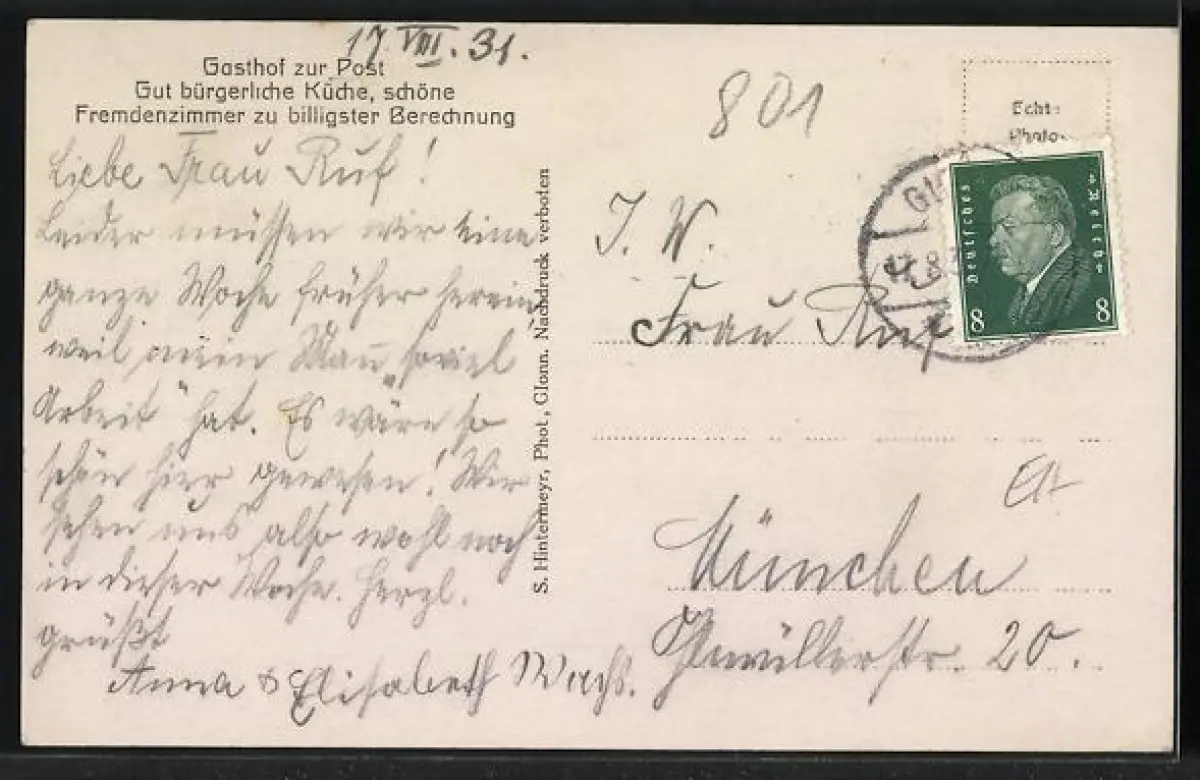 17. VIII. 31.
Gasthof zur Post
Gut bürgerliche Küche, schöne
Fremdenzimmer zu billigster Berechnung
Liebe Frau Ruf!
Leider müssen wir eine
ganze Woche früher herein,
weil mein Mann soviel
Arbeit hat. Es wäre so
schön hier gewesen! Wir
sehen uns also wohl noch
in dieser Woche. Herzl.
grüßt
Anna & Elisabeth
S. Hintermeyr, Phot., Glonn. Nachdruck verboten
801
Echt:
Photo-
Deutsches Reich
8 8
17.8.
I. W.
Frau Ruf
München
20.